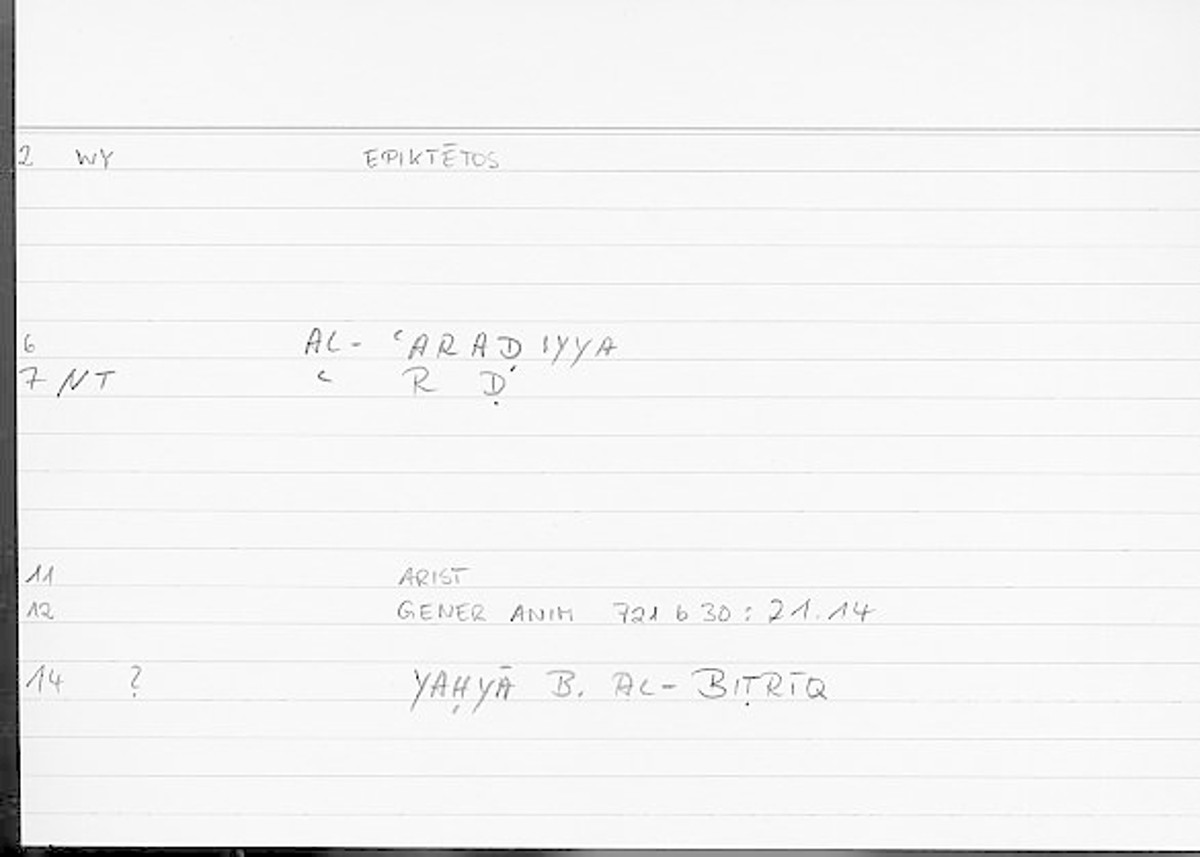 2 WY EPIKTĒTOS
6 AL- ʿARAḌIYYA
7 NT ʿ R Ḍ
11 ARIST
12 GENER ANIM 721 b 30 : 21.14
14 ? YAḤYĀ B. AL-BIṬRĪQ